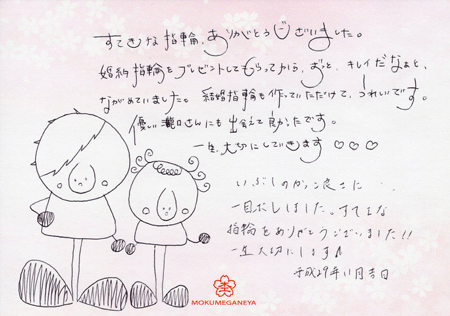 すてきな指輪、ありがとうございました。
婚約指輪をプレゼントしてもらってから、ずっと、キレイだなぁと、
ながめていました。結婚指輪も作っていただけて、うれしいです。
優しい瀧口さんにも出会えて良かったです。
一生、大切にしていきます♡♡♡
いぶしのかっこ良さに
一目ぼれしました。すてきな
指輪をありがとうございました!!
一生大切にします♪
平成29年11月吉日
MOKUMEGANEYA